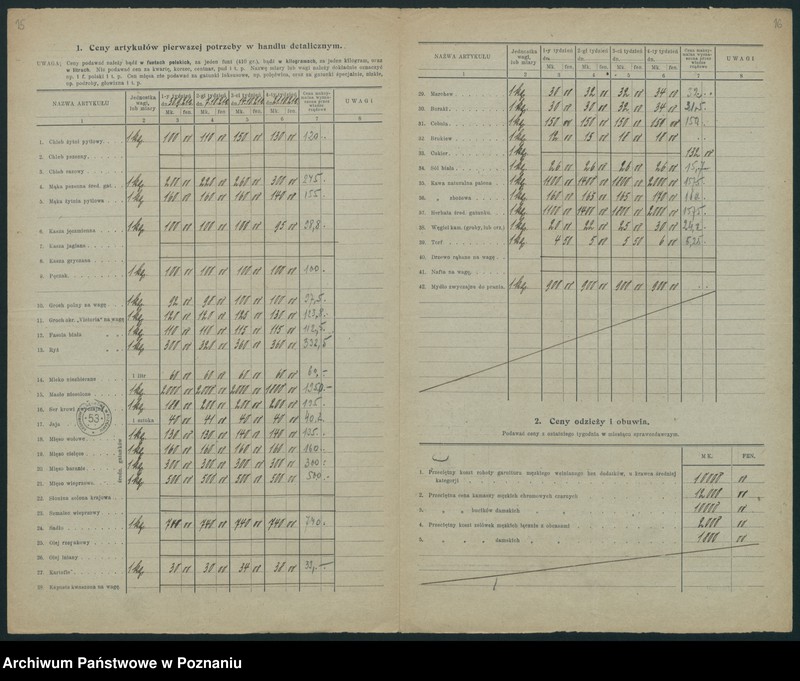 1. Ceny artykułów pierwszej potrzeby w handlu detalicznym.
UWAGA: Ceny podawać należy bądź w funtach polskich, za jeden funt (410 gr.), bądź w kilogramach, za jeden kilogram, oraz
w litrach. Nie podawać cen za kwartę, korzec, centnar, pud i t. p. Nazwę miary lub wagi należy dokładnie oznaczyć
np. 1 f. polski i t. p. Cen mięsa nie podawać za gatunki luksusowe, np. polędwica, oraz za gatunki specjalnie, niskie,
np. podroby, głowizna i t. p.
NAZWA ARTYKUŁU Jednostka wagi, lub miary 1-y tydzień 2-gi tydzień 3-ci tydzień 4-ty tydzień UWAGI
Mk. fen. Mk. fen. Mk. fen. Mk. fen.
1 2 3 4 5 6 7 8
1. Chleb żytni pytlowy 1 kg 100 110 150 130 120
2. Chleb pszenny
3. Chleb razowy
4. Mąka pszenna śred. gat. 1 kg 200 220 260 300 245
5. Mąka żytnia pytlowa 1 kg 160 160 160 140 155
6. Kasza jęczmienna 1 kg 100 100 100 95 98,8
7. Kasza jaglana
8. Kasza gryczana
9. Pęczak 1 kg 100 100 100 100 100
10. Groch polny na wagę 1 kg 92 98 100 100 97,5
11. Groch okr. „Victoria" na wagę 1 kg 120 120 125 130 123,8
12. Fasola biała 1 kg 110 110 115 115 112,5
13. Ryż 1 kg 300 320 360 360 332,5
14. Mleko niezbierane 1 litr 60 60 60 60 60,-
15. Masło 1 kg 2000 2000 2000 1800 1950
16. Ser krowi 1 kg 200 200 200 195
17. Jaja 1 sztuka 40 41 40 40
18. Mięso wołowe 1 kg 130 130 140 140 135
19. Mięso cielęce 1 kg 160 160 160 160 160
20. Mięso baranie 1 kg 300 300 300 300 300
21. Mięso wieprzowe 1 kg 500 500 500 500 500
22. Słonina solona krajowa
23. Szmalec wieprzowy
24. Sadło 1 kg 740 740 740 740
25. Olej rzepakowy
26. Olej lniany
27. Kartofle 1 kg 30 30 34 38 33,-
28. Kapusta kwaszona na wagę
53
NAZWA ARTYKUŁU Jednostka wagi, lub miary 1-y tydzień 2-gi tydzień 3-ci tydzień 4-ty tydzień UWAGI
Mk. fen. Mk. fen. Mk. fen. Mk. fen.
1 2 3 4 5 6 7 8
29. Marchew 1 kg 30 32 32 34
30. Buraki 1 kg 30 30 32 34
31. Cebula 1 kg 150 150 150 150 150
32. Brukiew 1 kg 12 15 18 18
33. Cukier 1 kg 132
34. Sól biała 1 kg 26 26 26 26
35. Kawa naturalna palona 1 kg 1100 1400 1800 2000 1575
36. „ zbożowa 1 kg 160 165 165 170
37. Herbata śred. gatunku 1 kg 1100 1400 1800 2000 1575
38. Węgiel kam. (gruby, lub orz.) 1 kg 20 22 25 30
39. Torf 1 kg 4 50 5 5 50 6 5,25
40. Drzewo rąbane na wagę
41. Nafta na wagę
42. Mydło zwyczajne do prania 1 kg 900 900 900 900
2. Ceny odzieży i obuwia.
Podawać ceny z ostatniego tygodnia w miesiącu sprawozdawczym.
MK. FEN.
1 2
1. Przeciętny koszt roboty garnituru męskiego wełnianego bez dodatków, u krawca średniej
kategorji 18000
2. Przeciętna cena kamaszy męskich chromowych czarnych 12.000
3. „ „ bucików damskich „ „ 10000
4. Przeciętny koszt zelówek męskich łącznie z obcasami 2.000
5. „ „ „ damskich „ „ 1800
Archiwum Państwowe w Poznaniu